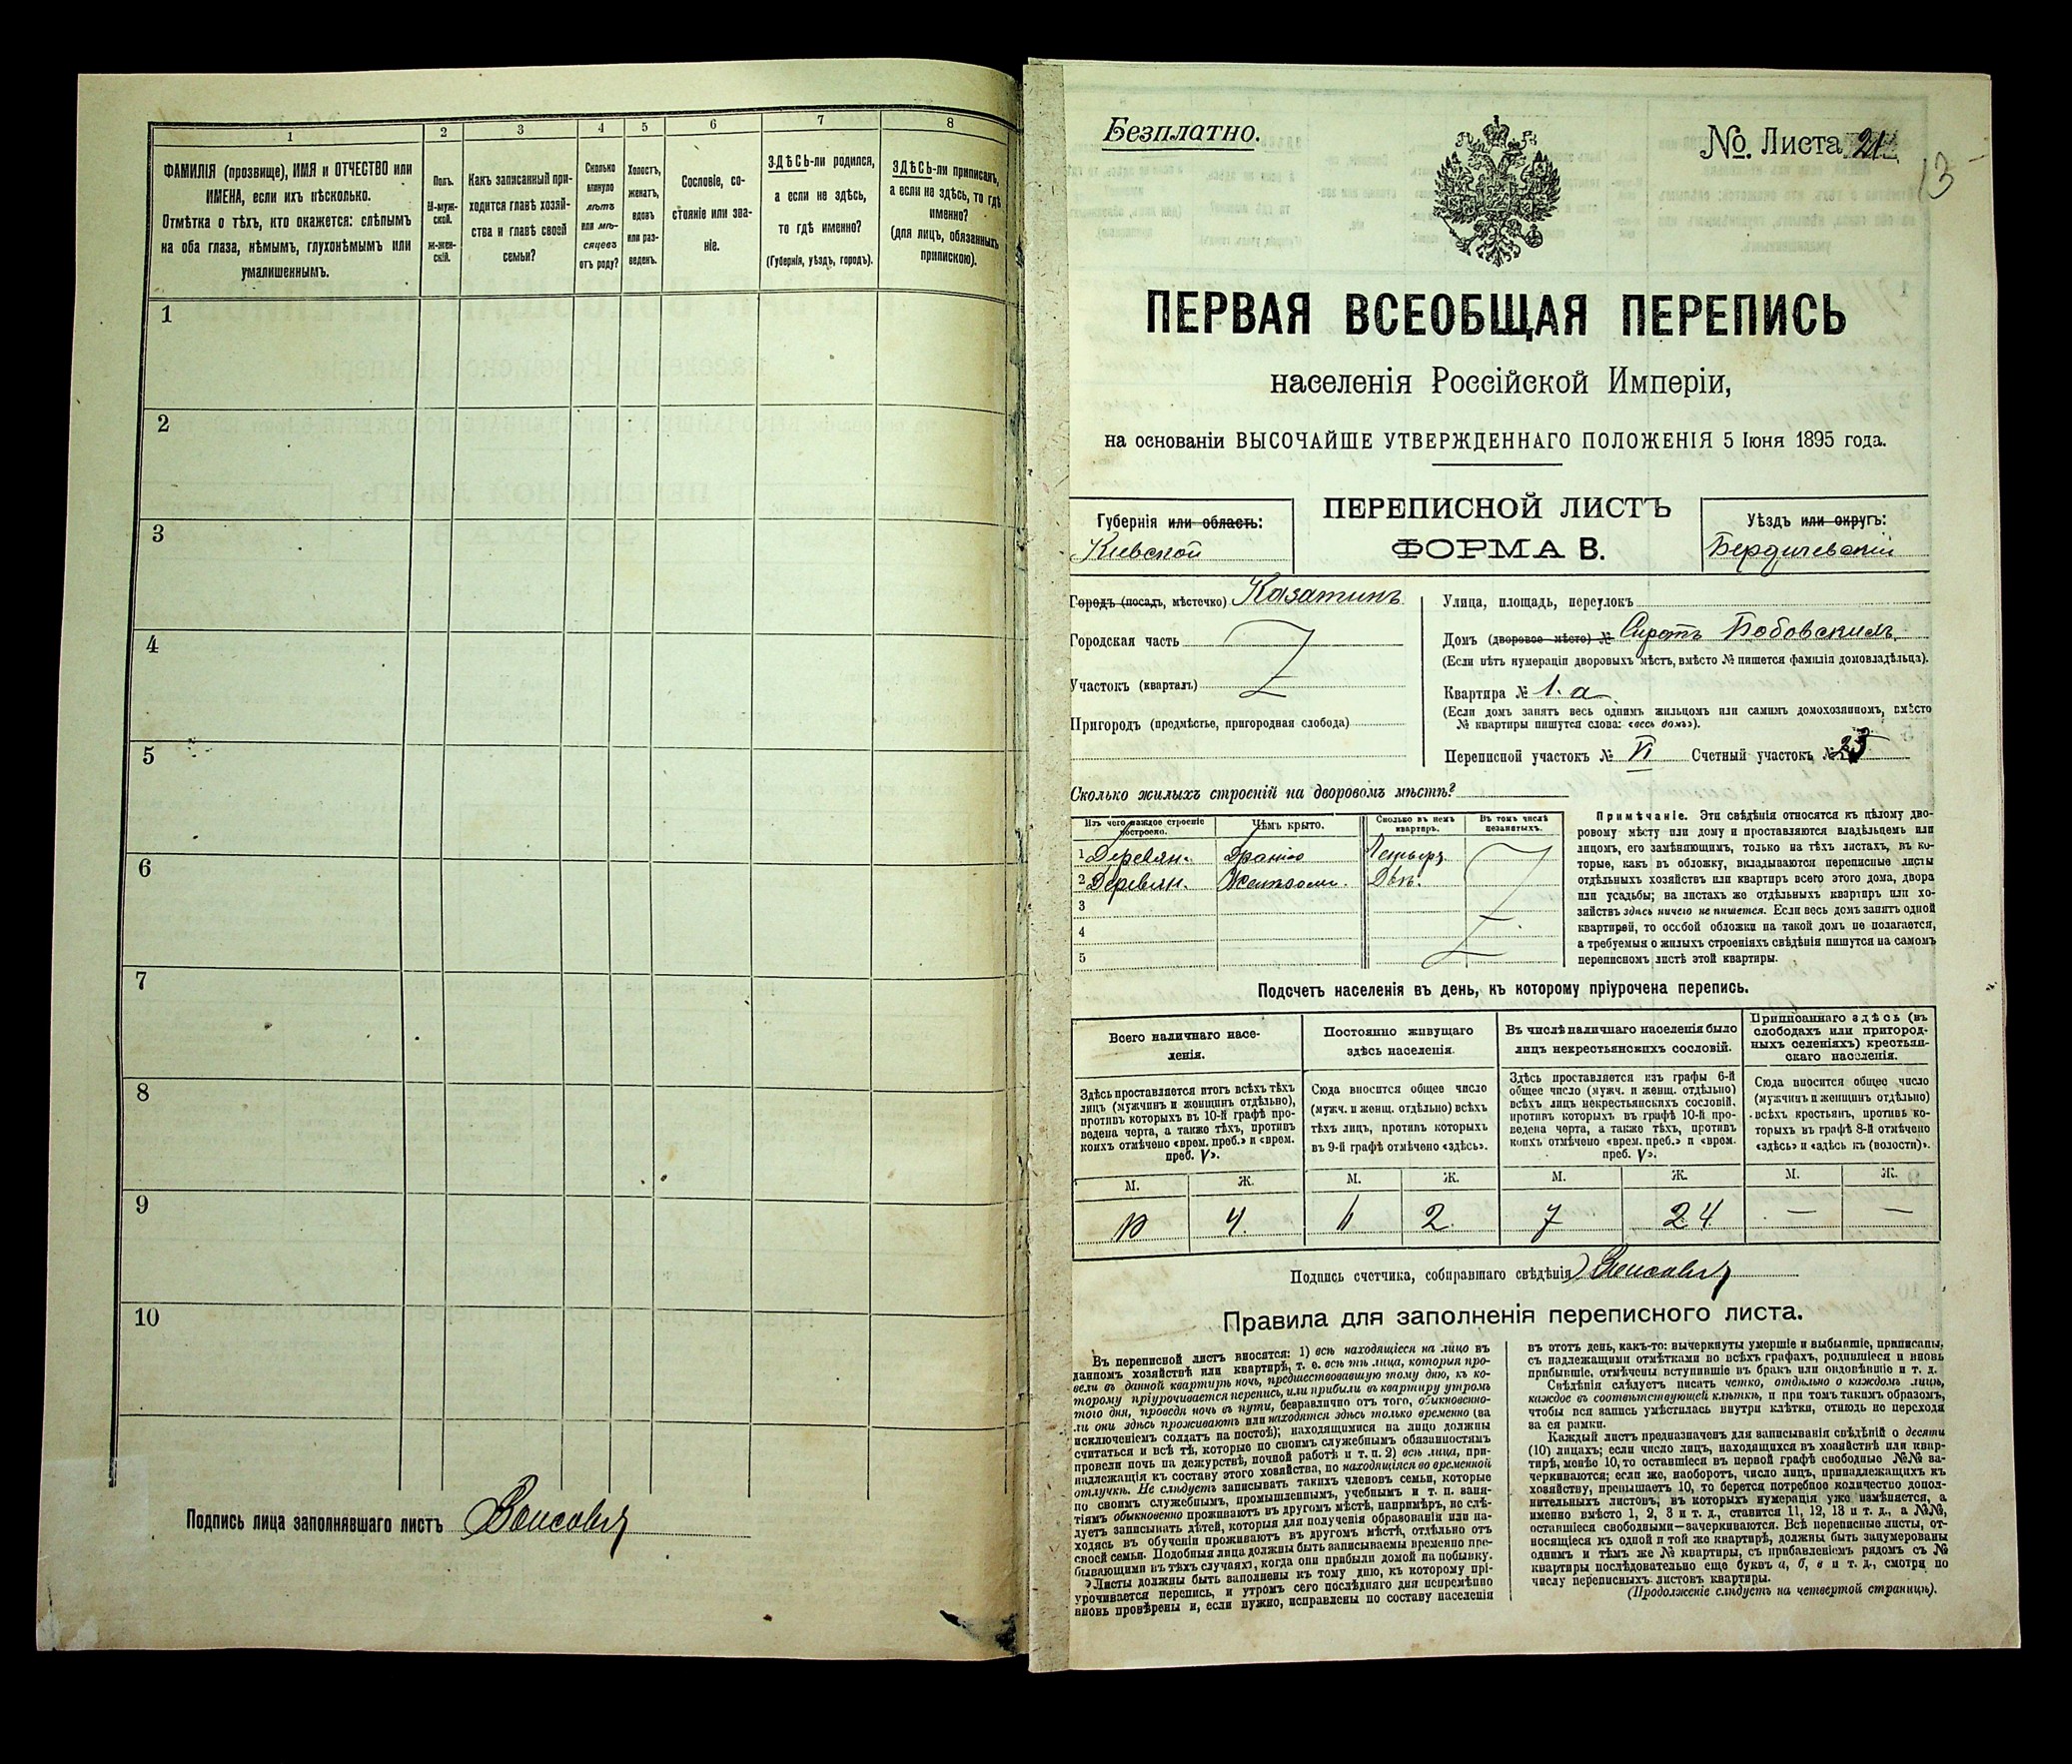 1
2
3
4
5
6
7
8
ФАМИЛІЯ (прозвище), ИМЯ и ОТЧЕСТВО или
ИМЕНА, если ихъ нѣсколько.
Отмѣтка о тѣхъ, кто окажется: слѣпымъ
на оба глаза, нѣмымъ, глухонѣмымъ или
умалишеннымъ.
Полъ.
М-муж-
ской.
Ж-жен-
скій.
Какъ записанный при-
ходится главѣ хозяй-
ства и главѣ своей
семьи?
Сколько
минуло
лѣтъ
или мѣ-
сяцевъ
отъ роду?
Холостъ,
женатъ,
вдовъ
или раз-
веденъ.
Сословіе, со-
стояніе или зва-
ніе.
ЗДѢСЬ-ли родился,
а если не здѣсь,
то гдѣ именно?
(Губернія, уѣздъ, городъ).
ЗДѢСЬ-ли приписанъ,
а если не здѣсь, то гдѣ
именно?
(для лицъ, обязанныхъ
припискою).
1
2
3
4
5
6
7
8
9
10
Подпись лица заполнявшаго листъ
Безплатно.
№ Листа 21
13
ПЕРВАЯ ВСЕОБЩАЯ ПЕРЕПИСЬ
населенія Россійской Имперіи,
на основаніи ВЫСОЧАЙШЕ УТВЕРЖДЕННАГО ПОЛОЖЕНІЯ 5 Іюня 1895 года.
Губернія или область:
Кіевской
ПЕРЕПИСНОЙ ЛИСТЪ
ФОРМА В.
Уѣздъ или округъ:
Бердичевскій
Городъ (посадъ, мѣстечко) Казатинъ
Городская часть
Участокъ (кварталъ)
Пригородъ (предмѣстье, пригородная слобода)
Улица, площадь, переулокъ
Домъ (дворовое мѣсто) № Сиротъ Бобовскихъ
(Если нѣтъ нумераціи дворовыхъ мѣстъ, вмѣсто № пишется фамилія домовладѣльца).
Квартира № 1. а
(Если домъ занятъ весь однимъ жильцомъ или самимъ домохозяиномъ, вмѣсто
№ квартиры пишутся слова: «весь домъ»).
Переписной участокъ № VI Счетный участокъ № 25
Сколько жилыхъ строеній на дворовомъ мѣстѣ?
Изъ чего каждое строеніе
построено.
Чѣмъ крыто.
Сколько въ немъ
квартиръ.
Въ томъ числѣ
незанятыхъ.
1 Деревян. Дранью Четыре
2 Деревян. Желѣзомъ Двѣ.
3
4
5
Примѣчаніе. Эти свѣдѣнія относятся къ цѣлому дво-
ровому мѣсту или дому и проставляются владѣльцемъ или
лицомъ, его замѣняющимъ, только на тѣхъ листахъ, въ ко-
торые, какъ въ обложку, вкладываются переписные листы
отдѣльныхъ хозяйствъ или квартиръ всего этого дома, двора
или усадьбы; на листахъ же отдѣльныхъ квартиръ или хо-
зяйствъ здѣсь ничего не пишется. Если весь домъ занятъ одной
квартирей, то особой обложки на такой домъ не полагается,
а требуемыя о жилыхъ строеніяхъ свѣдѣнія пишутся на самомъ
переписномъ листѣ этой квартиры.
Подсчетъ населенія въ день, къ которому пріурочена перепись.
Всего наличнаго насе-
ленія.
Постоянно живущаго
здѣсь населенія.
Въ числѣ наличнаго населенія было
лицъ некрестьянскихъ сословій.
Приписаннаго здѣсь (въ
слободахъ или пригород-
ныхъ селеніяхъ) крестьян-
скаго населенія.
Здѣсь проставляется итогъ всѣхъ тѣхъ
лицъ (мужчинъ и женщинъ отдѣльно),
противъ которыхъ въ 10-й графѣ про-
ведена черта, а также тѣхъ, противъ
коихъ отмѣчено «врем. преб.» и «врем.
преб. V».
Сюда вносится общее число
(мужч. и женщ. отдѣльно) всѣхъ
тѣхъ лицъ, противъ которыхъ
въ 9-й графѣ отмѣчено «здѣсь».
Здѣсь проставляется изъ графы 6-й
общее число (мужч. и женщ. отдѣльно)
всѣхъ лицъ некрестьянскихъ сословій,
противъ которыхъ въ графѣ 10-й про-
ведена черта, а также тѣхъ, противъ
коихъ отмѣчено «врем. преб.» и «врем.
преб. V».
Сюда вносится общее число
(мужчинъ и женщинъ отдѣльно)
всѣхъ крестьянъ, противъ ко-
торыхъ въ графѣ 8-й отмѣчено
«здѣсь» и «здѣсь къ (волости)».
М. Ж. М. Ж. М. Ж. М. Ж.
4. 2 7 24 — —
Подпись счетчика, собиравшаго свѣдѣнія
Правила для заполненія переписного листа.
Въ переписной листъ вносятся: 1) всѣ находящіеся на лицо въ
данномъ хозяйствѣ или квартирѣ, т. е. всѣ тѣ лица, которыя про-
вели въ данной квартирѣ ночь, предшествовавшую тому дню, къ ко-
торому пріурочивается перепись, или прибыли въ квартиру утромъ
того дня, проведя ночь въ пути, безразлично отъ того, обыкновенно-
ли они здѣсь проживаютъ или находятся здѣсь только временно (за
исключеніемъ солдатъ на постоѣ); находящимися на лицо должны
считаться и всѣ тѣ, которые по своимъ служебнымъ обязанностямъ
провели ночь на дежурствѣ, ночной работѣ и т. п. 2) всѣ лица, при-
надлежащія къ составу этого хозяйства, но находящіяся во временной
отлучкѣ. Не слѣдуетъ записывать такихъ членовъ семьи, которые
по своимъ служебнымъ, промышленнымъ, учебнымъ и т. п. заня-
тіямъ обыкновенно проживаютъ въ другомъ мѣстѣ, напримѣръ, не слѣ-
дуетъ записывать дѣтей, которыя для полученія образованія или на-
ходясь въ обученіи проживаютъ въ другомъ мѣстѣ, отдѣльно отъ
своей семьи. Подобныя лица должны быть записываемы временно пре-
бывающими въ тѣхъ случаяхъ, когда они прибыли домой на побывку.
Листы должны быть заполнены къ тому дню, къ которому прі-
урочивается перепись, и утромъ сего послѣдняго дня непремѣнно
вновь провѣрены и, если нужно, исправлены по составу населенія
въ этотъ день, какъ-то: вычеркнуты умершіе и выбывшіе, приписаны,
съ надлежащими отмѣтками во всѣхъ графахъ, родившіеся и вновь
прибывшіе, отмѣчены вступившіе въ бракъ или овдовѣвшіе и т. д.
Свѣдѣнія слѣдуетъ писать четко, отдѣльно о каждомъ лицѣ,
каждое въ соотвѣтствующей клѣткѣ, и при томъ такимъ образомъ,
чтобы вся запись умѣстилась внутри клѣтки, отнюдь не переходя
за ея рамки.
Каждый листъ предназначенъ для записыванія свѣдѣній о десяти
(10) лицахъ; если число лицъ, находящихся въ хозяйствѣ или квар-
тирѣ, менѣе 10, то оставшіеся въ первой графѣ свободные №№ за-
черкиваются; если же, наоборотъ, число лицъ, принадлежащихъ къ
хозяйству, превышаетъ 10, то берется потребное количество допол-
нительныхъ листовъ, въ которыхъ нумерація уже измѣняется, а
именно вмѣсто 1, 2, 3 и т. д., ставится 11, 12, 13 и т. д., а №№,
оставшіеся свободными—зачеркиваются. Всѣ переписные листы, от-
носящіеся къ одной и той же квартирѣ, должны быть занумерованы
однимъ и тѣмъ же № квартиры, съ прибавленіемъ рядомъ съ №
квартиры послѣдовательно еще буквъ а, б, в и т. д., смотря по
числу переписныхъ листовъ квартиры.
(Продолженіе слѣдуетъ на четвертой страницѣ).